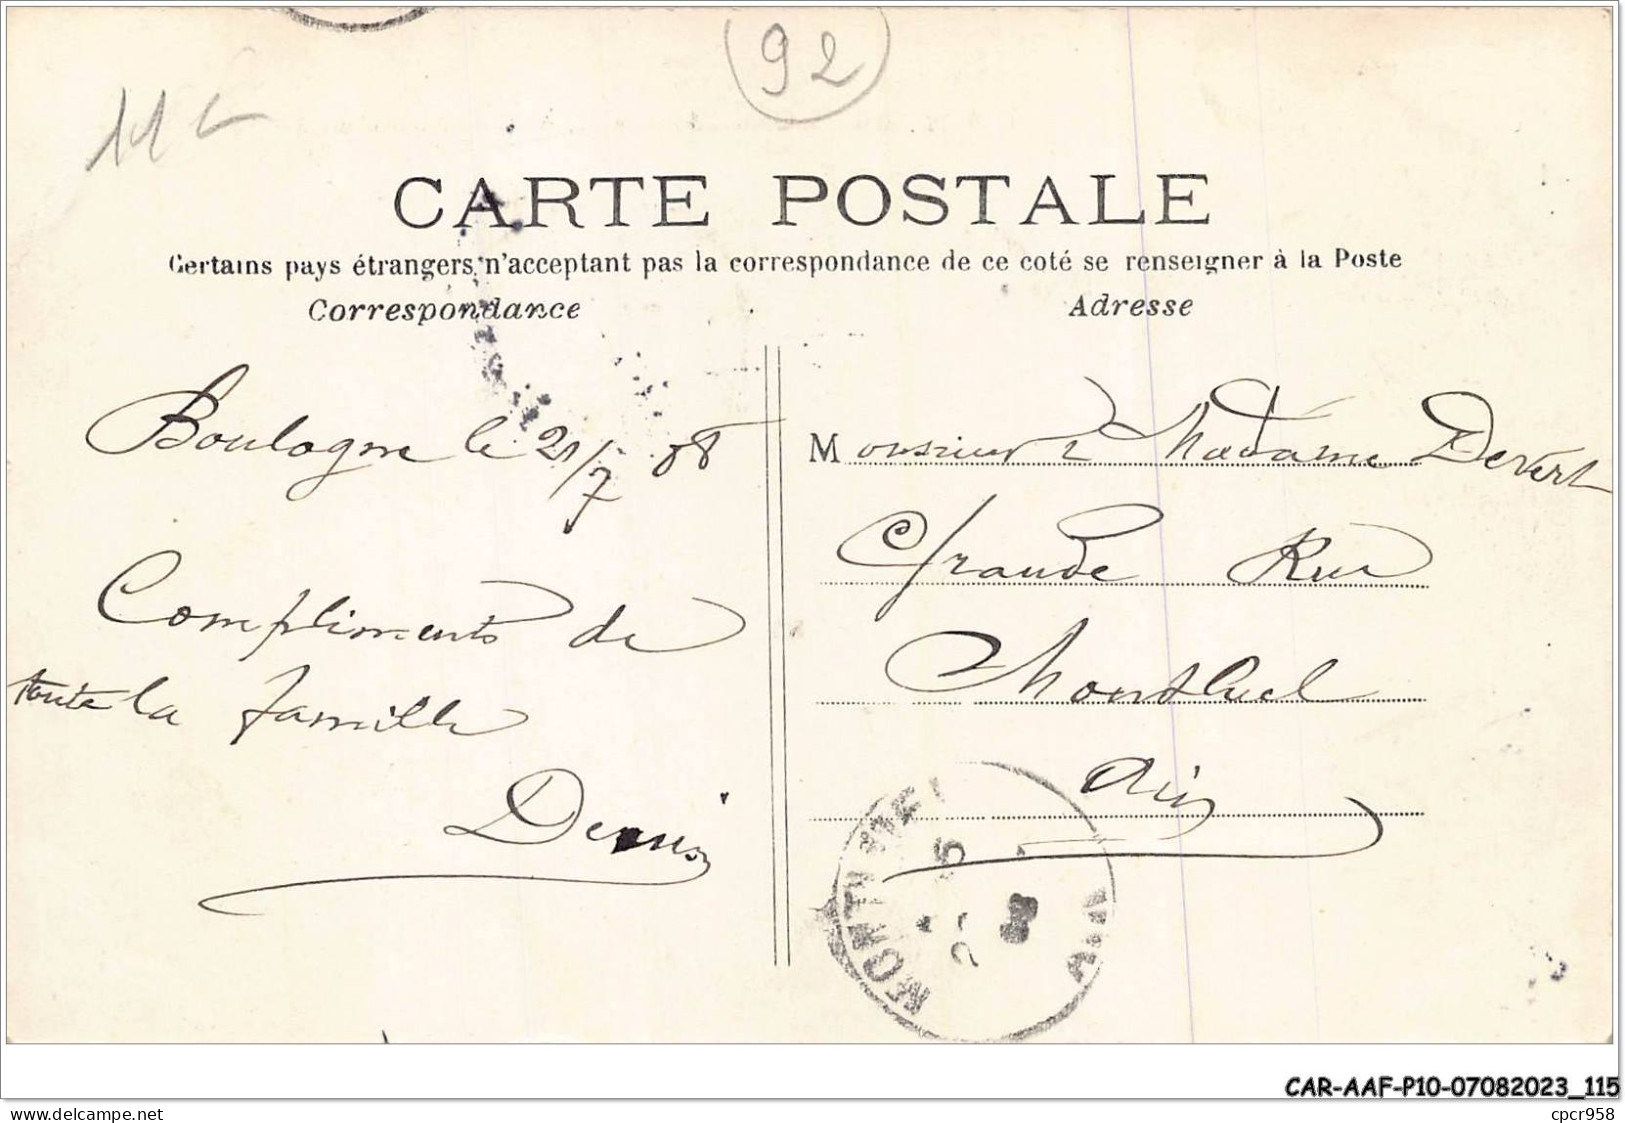 92
CARTE POSTALE
Certains pays étrangers n'acceptant pas la correspondance de ce coté se renseigner à la Poste
Correspondance
Adresse
Boulogne le 21/7 08
Compliments de
toute la famille
Denis
Monsieur & Madame Devert
Grande Rue
Montluel
Ain
MONTLUEL
CAR-AAF-P10-07082023_115
cpcr958